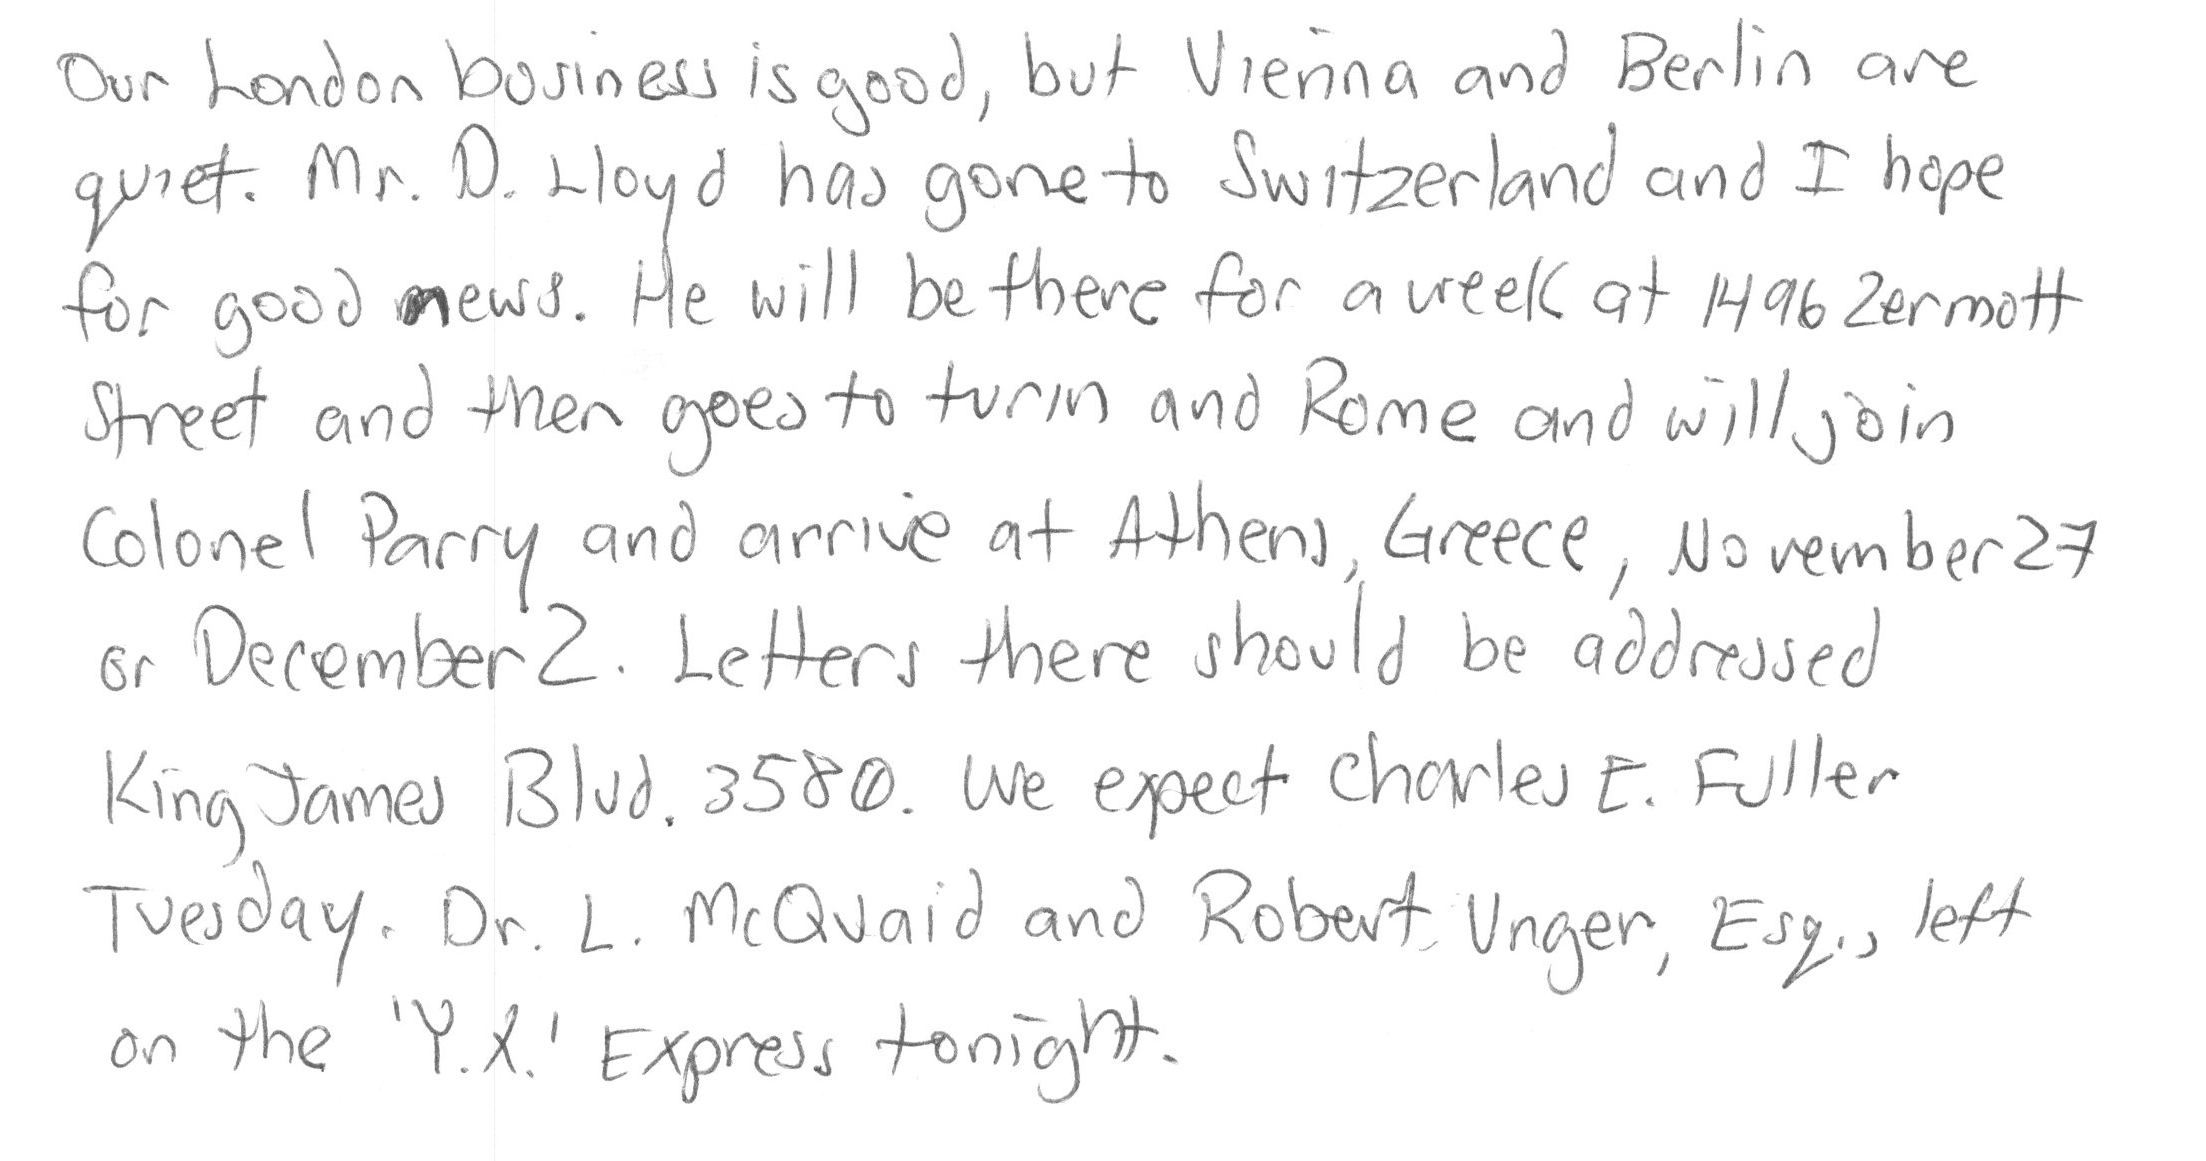 Our London business is good, but Vienna and Berlin are
quiet. Mr. D. Lloyd has gone to Switzerland and I hope
for good news. He will be there for a week at 1496 Zermott
Street and then goes to turin and Rome and will join
Colonel Parry and arrive at Athens, Greece, November 27
or December 2. Letters there should be addressed
King James Blvd. 3580. We expect Charles E. Fuller
Tuesday. Dr. L. McQuaid and Robert Unger, Esq., left
on the 'Y.X.' Express tonight.